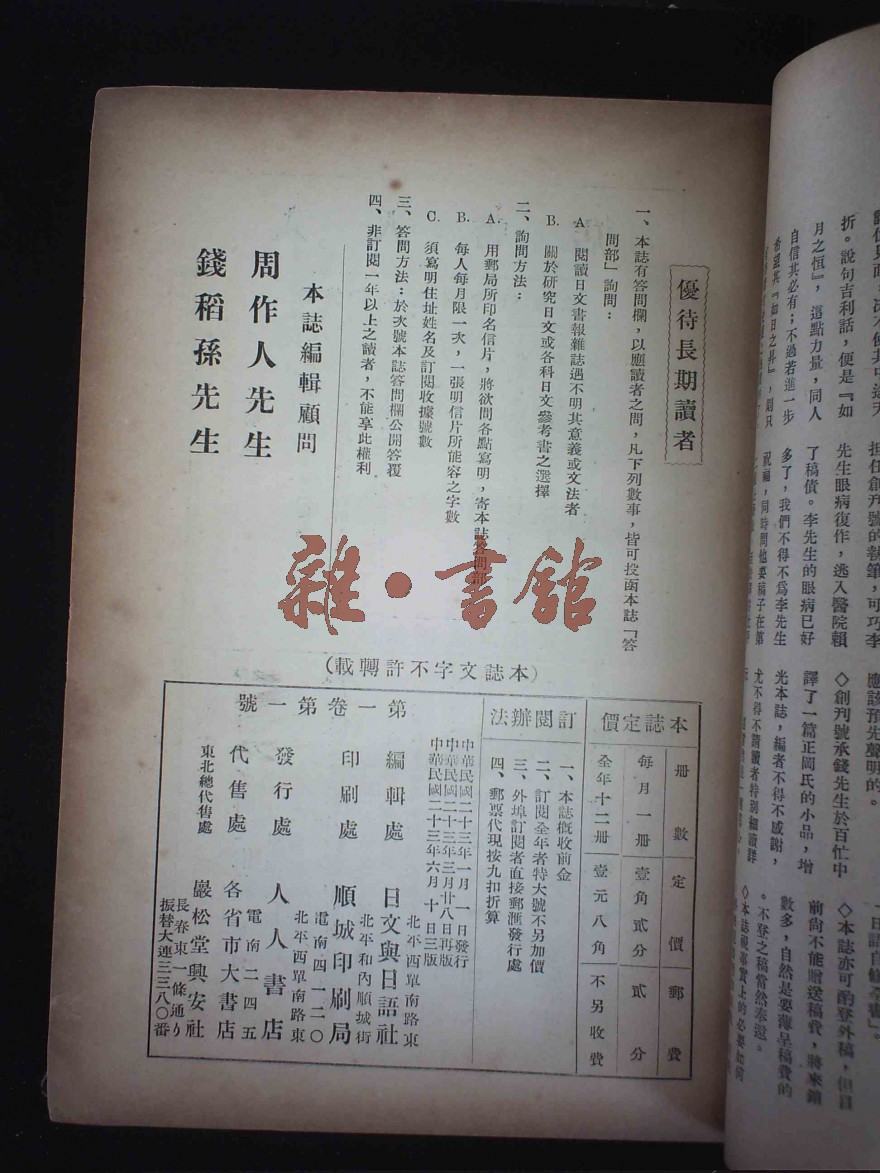 優待長期讀者
一、本誌有答問欄，以應讀者之問，凡下列數事，皆可投函本誌「答
問部」詢問：
A 閱讀日文書報雜誌遇不明其意義或文法者
B. 關於研究日文或各科日文參考書之選擇
二、詢問方法：
A. 用郵局所印名信片，將欲問各點寫明，寄本誌答問部
B. 每人每月限一次，一張明信片所能容之字數
C. 須寫明住址姓名及訂閱收據號數
三、答問方法：於次號本誌答問欄公開答覆
四、非訂閱一年以上之讀者，不能享此權利
本誌編輯顧問
周作人先生
錢稻孫先生
雜·書館
（本誌文字不許轉載）
本誌定價
冊數 定價 郵費
每月一冊 壹角貳分 貳分
全年十二冊 壹元八角 不另收費
訂閱辦法
一、本誌概收前金
二、訂閱全年者特大號不另加價
三、外埠訂閱者直接郵滙發行處
四、郵票代現按九扣折算
第一卷第一號
中華民國二十三年一月一日發行
中華民國二十三年三月廿八日再版
中華民國二十三年六月十日三版
編輯處 日文與日語社
北平西單南路東
印刷處 順城印刷局
北平和內順城街
電南四一二〇
發行處 人人書店
北平西單南路東
電南二四五
代售處 各省市大書店
東北總代售處 巖松堂興安社
長春東一條通り
振替大連三三八〇番
折。說句吉利話，便是『如
月之恒』，這點力量，同人
自信其必有；不過若進一步
希望其『如日之昇』，則只
担任創刊號的執筆，可巧李
先生眼病復作，逃入醫院賴
了稿債。李先生的眼病已好
多了，我們不得不爲李先生
祝福，同時問他要稿子在第
應該預先聲明的。
◇創刊號承錢先生於百忙中
譯了一篇正岡氏的小品，增
光本誌，編者不得不感謝，
尤不得不請讀者特別細讀詳
「日語自修全書」。
◇本誌亦可酌登外稿，但目
前尙不能贈送稿費，將來銷
數多，自然是要薄呈稿費的
。不登之稿當然奉還。
◇本誌視事實上的必要如何